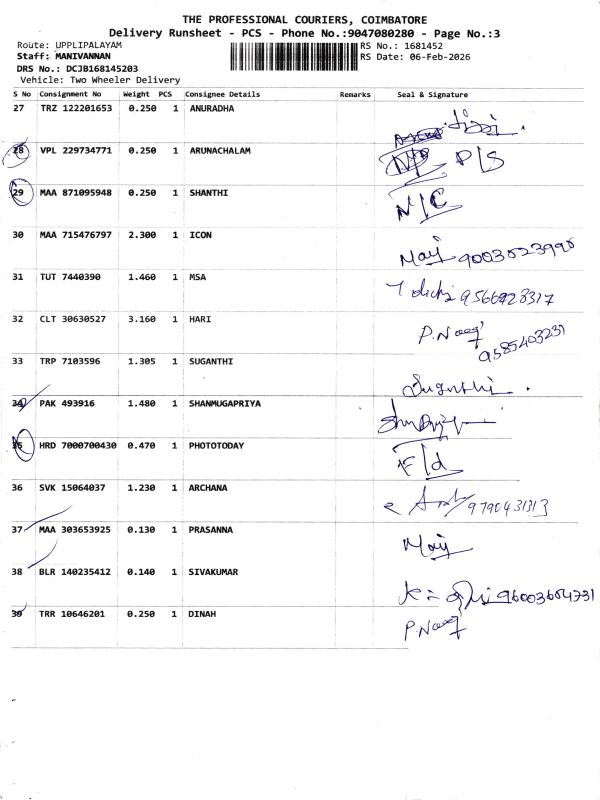 THE PROFESSIONAL COURIERS, COIMBATORE
Delivery Runsheet - PCS - Phone No.:9047080280 - Page No.:3
Route: UPPLIPALAYAM RS No.: 1681452
Staff: MANIVANNAN RS Date: 06-Feb-2026
DRS No.: DCJB168145203
Vehicle: Two Wheeler Delivery
S No Consignment No Weight PCS Consignee Details Remarks Seal & Signature
27 TRZ 122201653 0.250 1 ANURADHA
28 VPL 229734771 0.250 1 ARUNACHALAM P/S
29 MAA 871095948 0.250 1 SHANTHI N/C
30 MAA 715476797 2.300 1 ICON
31 TUT 7440390 1.460 1 MSA
32 CLT 30630527 3.160 1 HARI 9585403231
33 TRP 7103596 1.305 1 SUGANTHI Suganthi.
34 PAK 493916 1.480 1 SHANMUGAPRIYA
35 HRD 7000700430 0.470 1 PHOTOTODAY F/d
36 SVK 15064037 1.230 1 ARCHANA 9790431313
37 MAA 303653925 0.130 1 PRASANNA
38 BLR 140235412 0.140 1 SIVAKUMAR 96003604731
39 TRR 10646201 0.250 1 DINAH